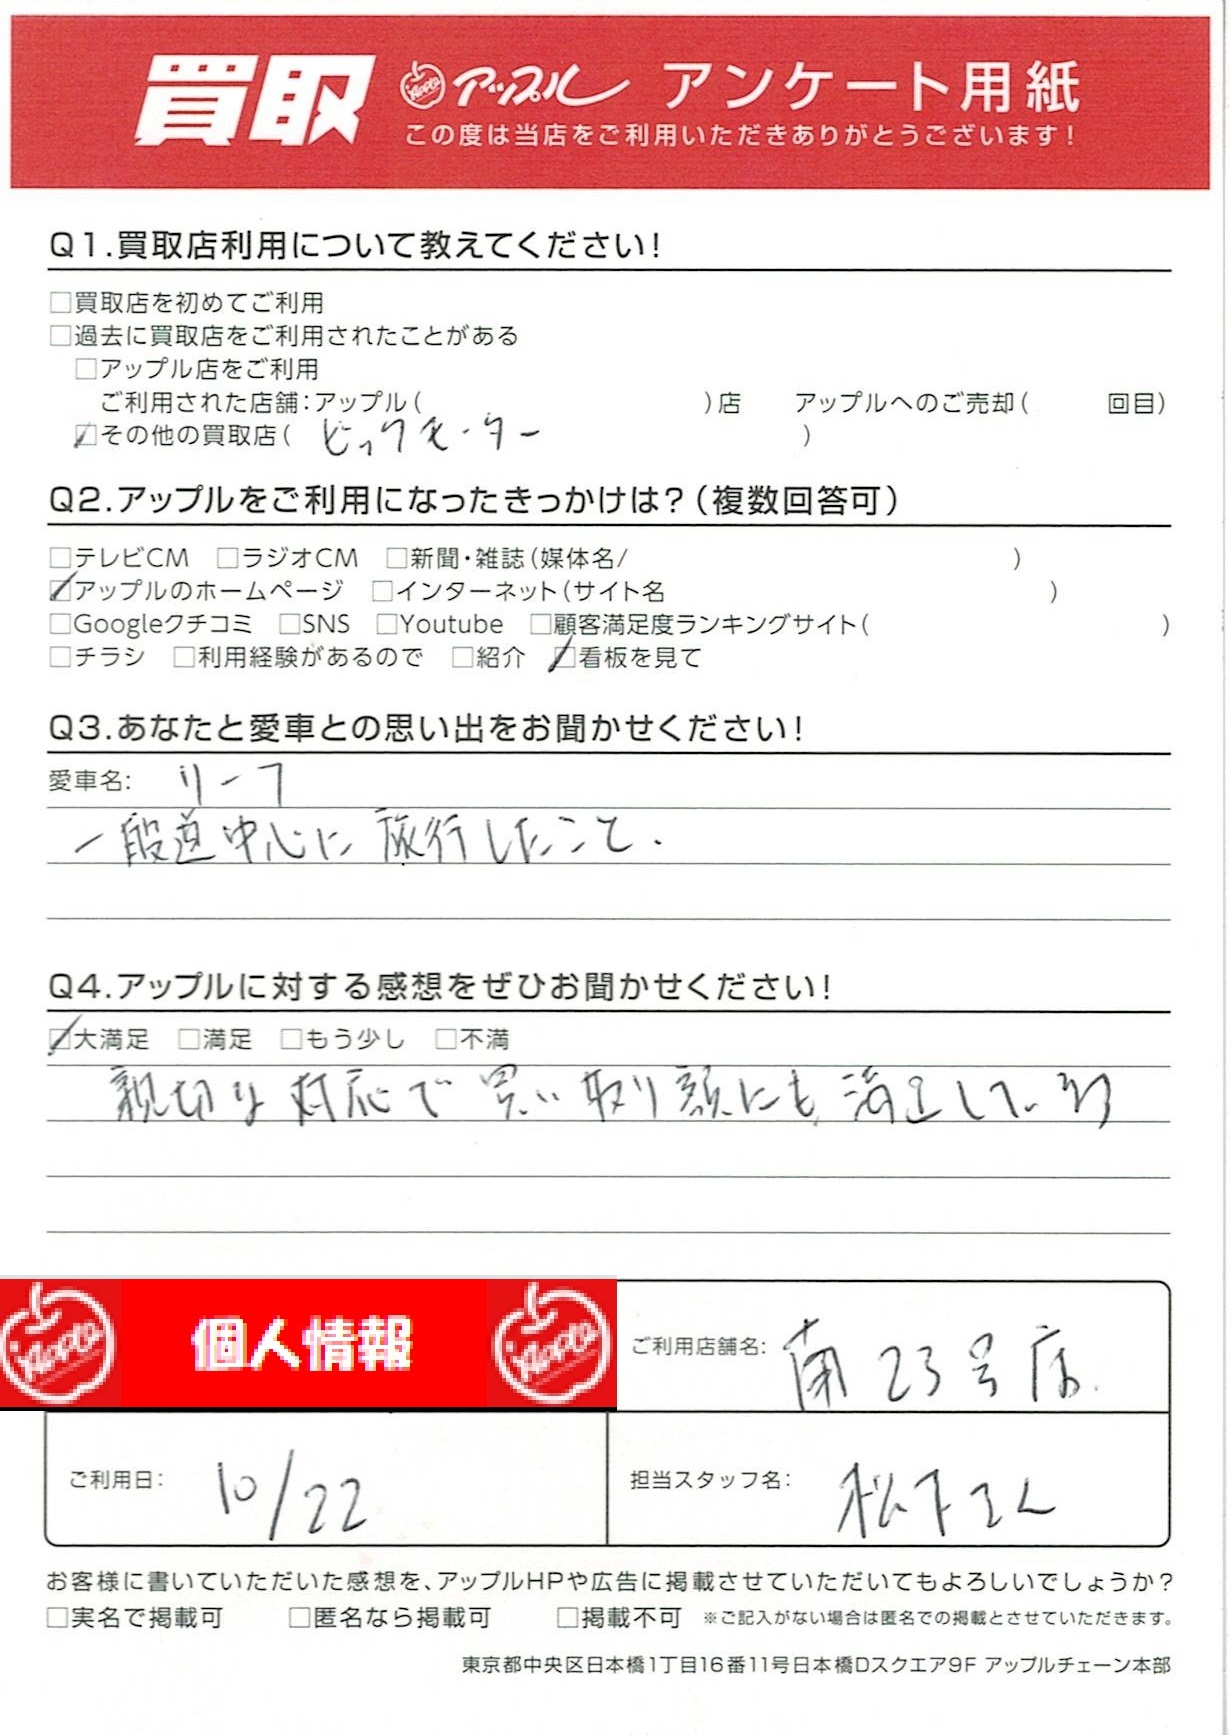 買取 Apple アップル アンケート用紙
この度は当店をご利用いただきありがとうございます!
Q1.買取店利用について教えてください!
□買取店を初めてご利用
□過去に買取店をご利用されたことがある
□アップル店をご利用
ご利用された店舗:アップル( )店 アップルへのご売却( 回目)
☑その他の買取店( ビックモーター )
Q2.アップルをご利用になったきっかけは?(複数回答可)
□テレビCM □ラジオCM □新聞・雑誌(媒体名/ )
☑アップルのホームページ □インターネット(サイト名 )
□Googleクチコミ □SNS □Youtube □顧客満足度ランキングサイト( )
□チラシ □利用経験があるので □紹介 ☑看板を見て
Q3.あなたと愛車との思い出をお聞かせください!
愛車名: リーフ
一般道中心に旅行したこと.
Q4.アップルに対する感想をぜひお聞かせください!
☑大満足 □満足 □もう少し □不満
親切な対応で買い取り額にも満足している
Apple 個人情報 Apple
ご利用店舗名: 南23号店.
ご利用日: 10/22
担当スタッフ名: 松下さん
お客様に書いていただいた感想を、アップルHPや広告に掲載させていただいてもよろしいでしょうか?
□実名で掲載可 □匿名なら掲載可 □掲載不可 ※ご記入がない場合は匿名での掲載とさせていただきます。
東京都中央区日本橋1丁目16番11号日本橋Dスクエア9F アップルチェーン本部